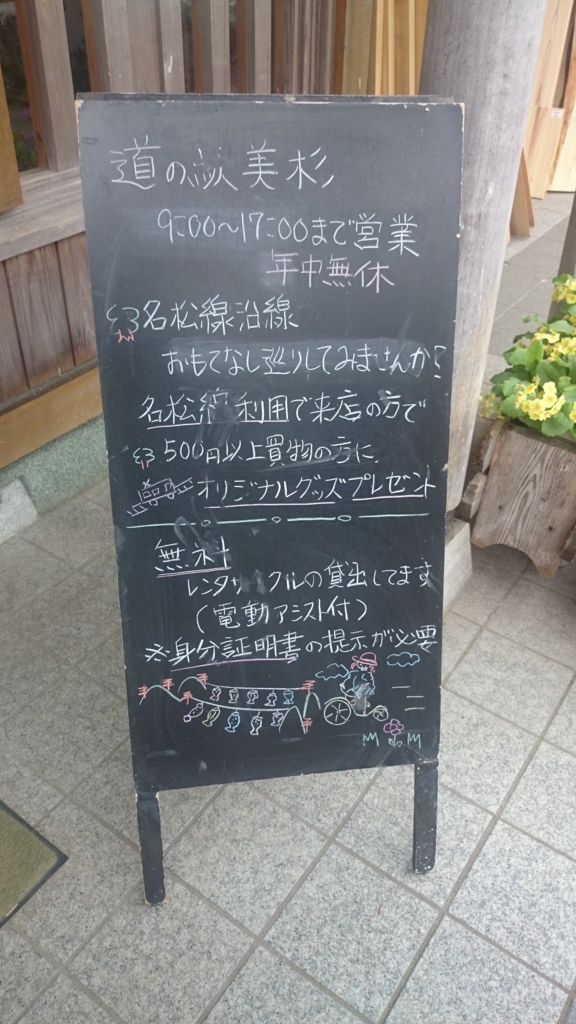 道の駅 美杉
9:00〜17:00まで営業
年中無休
名松線沿線
おもてなし巡りしてみませんか?
名松線 利用で来店の方で
500円以上買物の方に
オリジナルグッズプレゼント
無料
レンタサイクルの貸出してます
(電動アシスト付)
※身分証明書の提示が必要